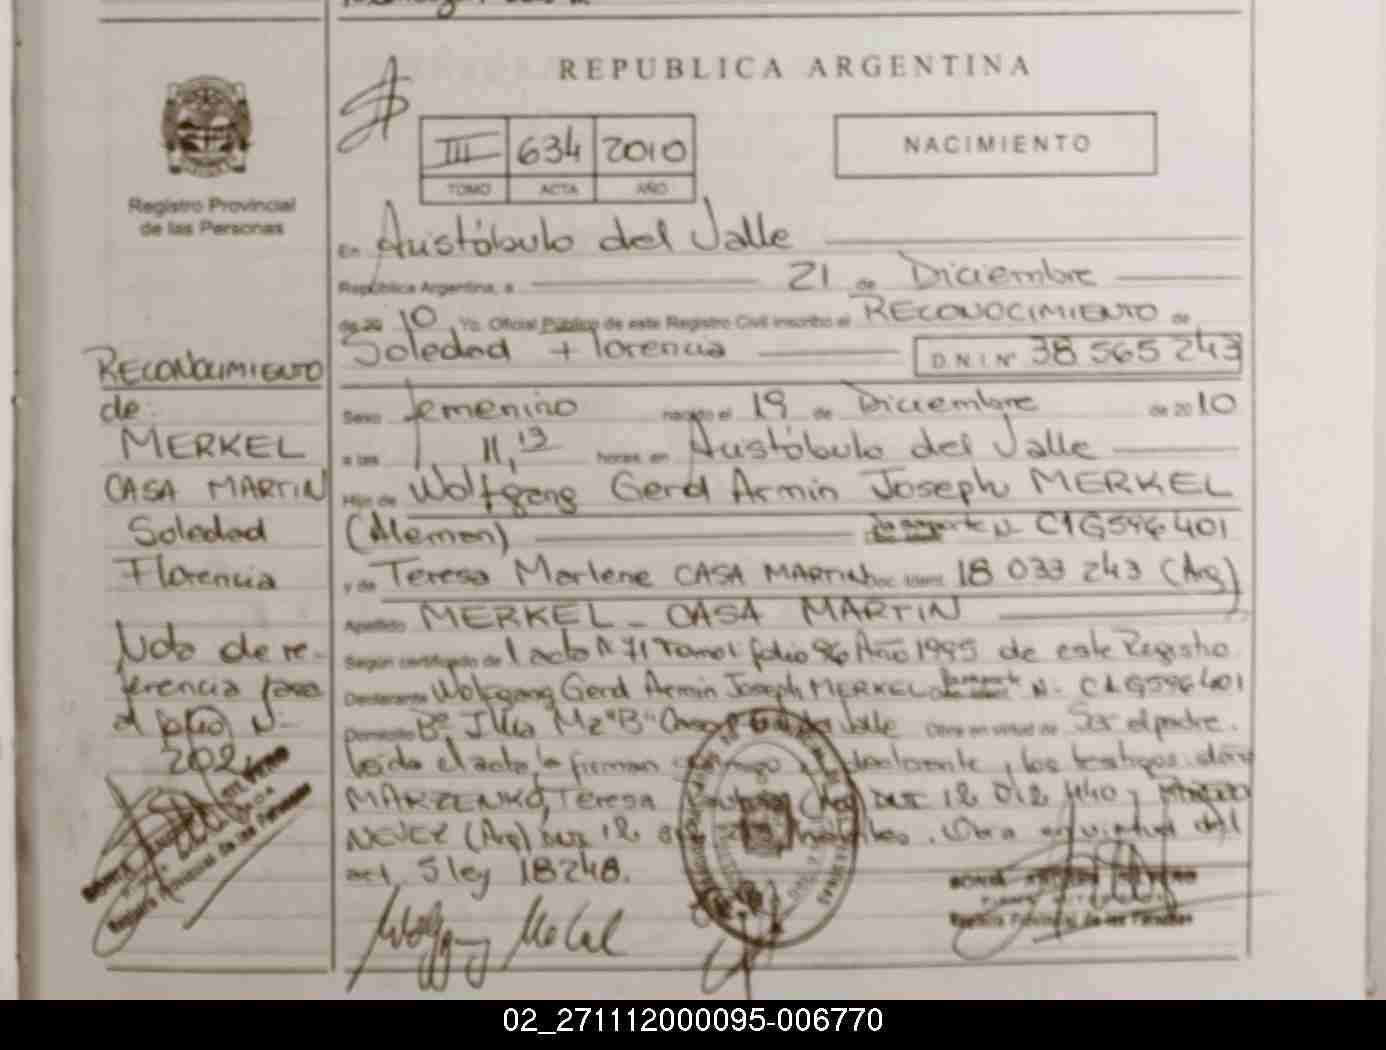 REPUBLICA ARGENTINA
III 634 2010
TOMO ACTA AÑO
NACIMIENTO
Registro Provincial
de las Personas
En Aristóbulo del Valle
República Argentina, a 21 de Diciembre
de 20 10 Yo, Oficial Público de este Registro Civil inscribo el RECONOCIMIENTO de
Soledad Florencia D.N.I. Nº 38 565 243
Sexo femenino nacido el 19 de Diciembre de 20 10
a las 11,13 horas en Aristóbulo del Valle
Hijo de Wolfgang Gerd Armin Joseph MERKEL
(Aleman) pasaporte N C1G596401
y de Teresa Marlene CASA MARTIN Doc. Ident. 18 033 243 (Arg)
Apellido MERKEL - CASA MARTIN
Según certificado de acta N 71 Tomo I folio 96 Año 1995 de este Registro
Declarante Wolfgang Gerd Armin Joseph MERKEL pasaporte N. C1G596401
Domicilio Bº Mz "B" del Valle Obra en virtud de Ser el padre.
leida el acta la firman conmigo el declarante, los testigos
MARZENKO, Teresa (Arg) DNI 12 012 440 y
(Arg) DNI 12 Obra en virtud del
art. 5 ley 18248.
RECONOCIMIENTO
de:
MERKEL
CASA MARTIN
Soledad
Florencia
Nota de re-
ferencia pasa
al folio N-
202
Registro Provincial de las Personas
Registro Provincial de las Personas
02_271112000095-006770